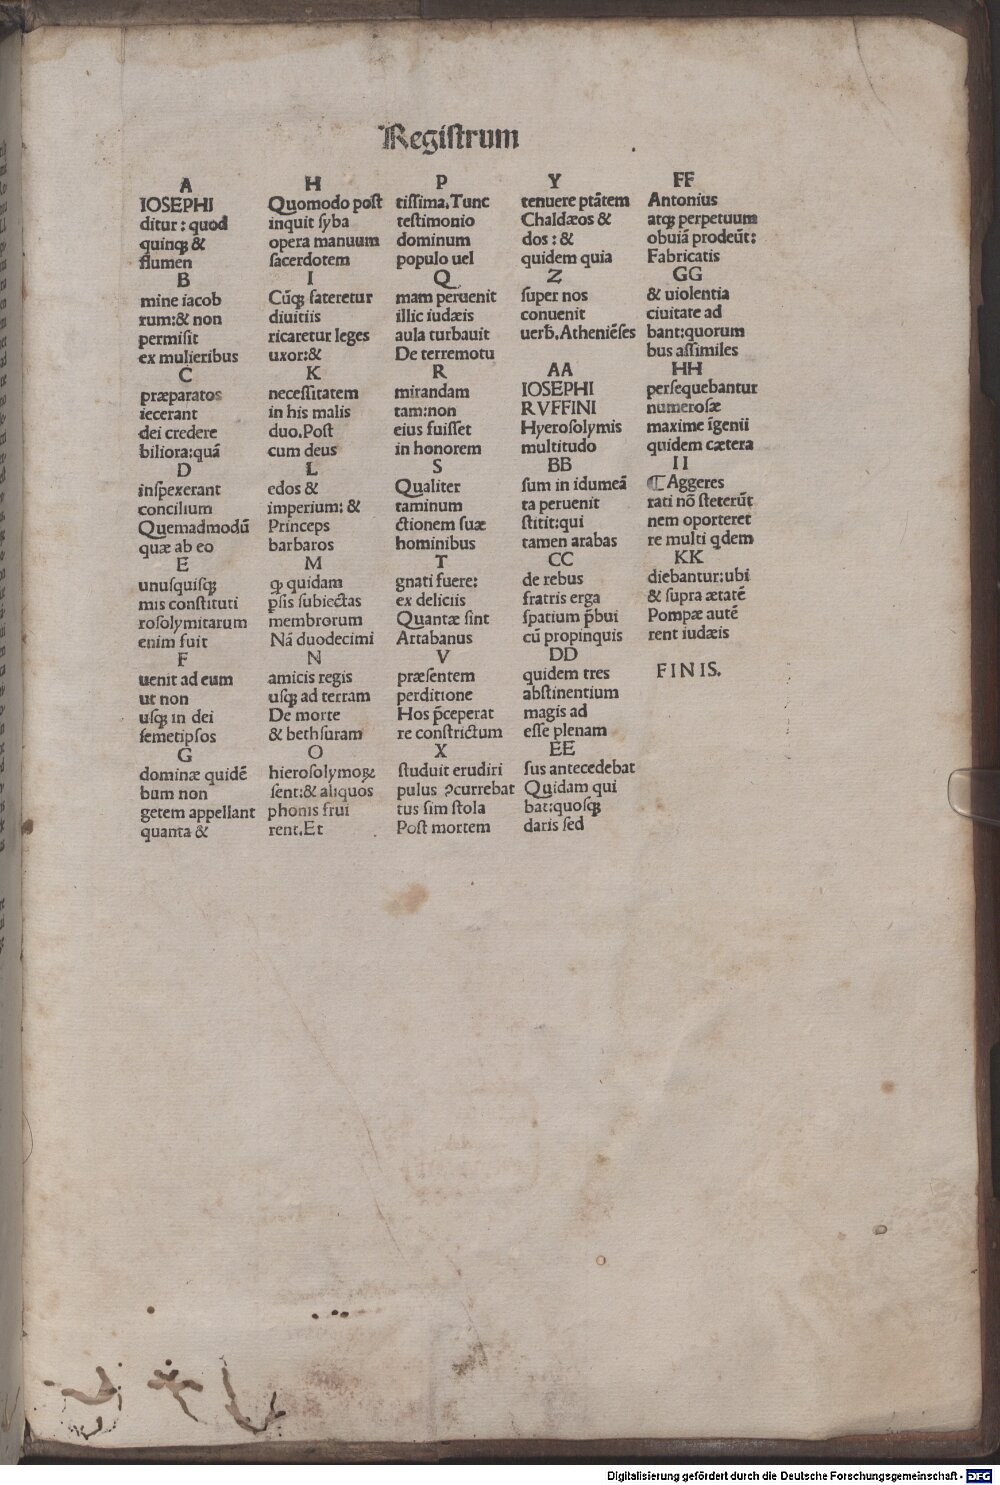 Regiſtrum
A
IOSEPHI
ditur : quod
quinqꝫ &
flumen
B
mine iacob
rum:& non
permiſit
ex mulieribus
C
præparatos
iecerant
dei credere
biliora:quā
D
inſpexerant
concilium
Quemadmodū
quæ ab eo
E
unuſquiſqꝫ
mis conſtituti
roſolymitarum
enim fuit
F
uenit ad eum
ut non
uſqꝫ in dei
ſemetipſos
G
dominæ quidē
bum non
getem appellant
quanta &
H
Quomodo poſt
inquit ſyba
opera manuum
ſacerdotem
I
Cūqꝫ fateretur
diuitiis
ricaretur leges
uxor:&
K
neceſſitatem
in his malis
duo.Poſt
cum deus
L
edos &
imperium: &
Princeps
barbaros
M
ꝙ quidam
p̄ſis ſubiectas
membrorum
Nā duodecimi
N
amicis regis
uſqꝫ ad terram
De morte
& bethſuram
O
hieroſolymoꝝ
ſent:& aliquos
phonis frui
rent.Et
P
tiſſima.Tunc
teſtimonio
dominum
populo uel
Q
mam peruenit
illic iudæis
aula turbauit
De terremotu
R
mirandam
tam:non
eius fuiſſet
in honorem
S
Qualiter
taminum
ctionem ſuæ
hominibus
T
gnati fuere:
ex deliciis
Quantæ ſint
Artabanus
V
præſentem
perditione
Hos p̄ceperat
re conſtrictum
X
ſtuduit erudiri
pulus ꝯcurrebat
tus ſim ſtola
Poſt mortem
Y
tenuere ptātem
Chaldæos &
dos : &
quidem quia
Z
ſuper nos
conuenit
uerƀ.Atheniēſes
AA
IOSEPHI
RVFFINI
Hyeroſolymis
multitudo
BB
ſum in idumeā
ta peruenit
ſtitit:qui
tamen arabas
CC
de rebus
fratris erga
ſpatium p̄bui
cū propinquis
DD
quidem tres
abſtinentium
magis ad
eſſe plenam
EE
ſus antecedebat
Quidam qui
bat:quoſqꝫ
daris ſed
FF
Antonius
atqꝫ perpetuum
obuiā prodeūt:
Fabricatis
GG
& uiolentia
ciuitate ad
bant:quorum
bus aſſimiles
HH
perſequebantur
numeroſæ
maxime īgenii
quidem cætera
II
¶ Aggeres
rati nō ſteterūt
nem oporteret
re multi qdem
KK
diebantur:ubi
& ſupra ætatē
Pompæ autē
rent iudæis
FINIS.
Digitalisierung gefördert durch die Deutsche Forschungsgemeinschaft - DFG